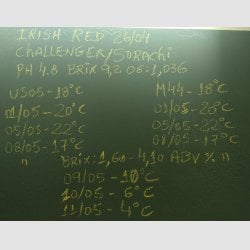 IRISH RED 26/04
CHALLENGER/SORACHI
PH 4.8 BRIX 9,2 OG: 1,036
US05 - 18°C
M44 - 18°C
01/05 - 20°C
01/05 - 20°C
05/05 - 22°C
05/05 - 22°C
08/05 - 17°C
08/05 - 17°C
" BRIX: 1,60 - 4,10 ABV % "
09/05 - 10°C
10/05 - 6°C
11/05 - 4°C